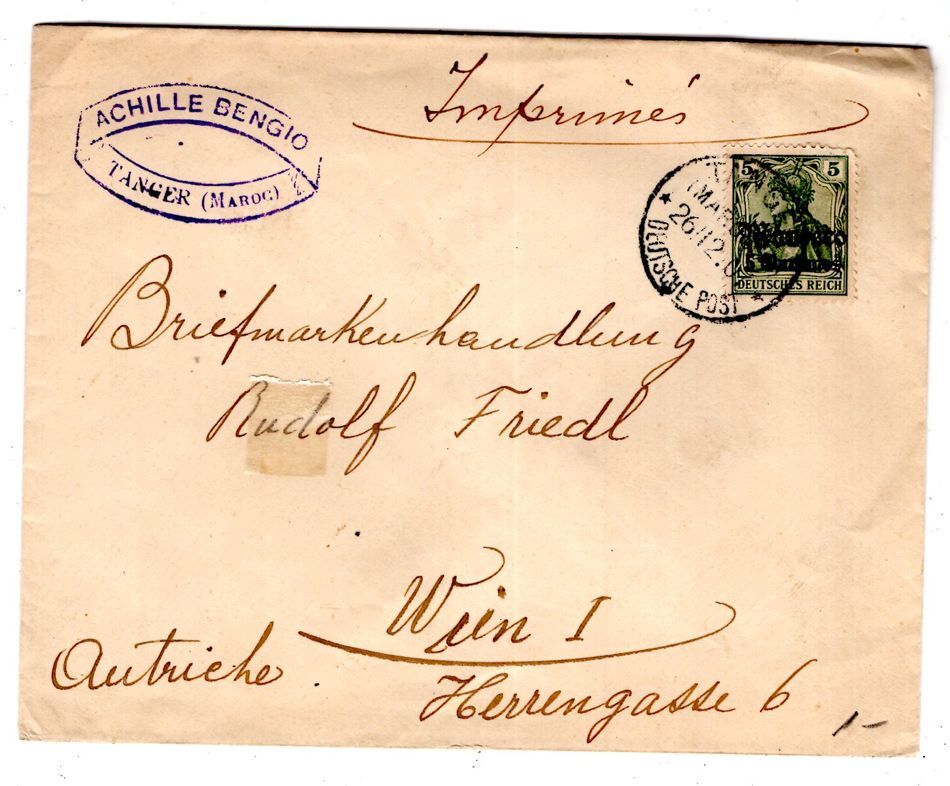 Imprimés
ACHILLE BENGIO
TANGER (MAROC)
5 5
DEUTSCHES REICH
26 12
DEUTSCHE POST
Briefmarkenhandlung
Rudolf Friedl
Wien I
Autriche.
Herrengasse 6
1-